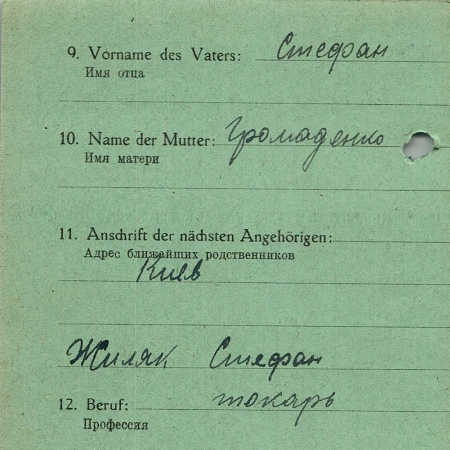 9. Vorname des Vaters: Стефан
Имя отца
10. Name der Mutter: Громаденко
Имя матери
11. Anschrift der nächsten Angehörigen:
Адрес ближайших родственников
Киев
Жиляк Стефан
12. Beruf: токарь
Профессия